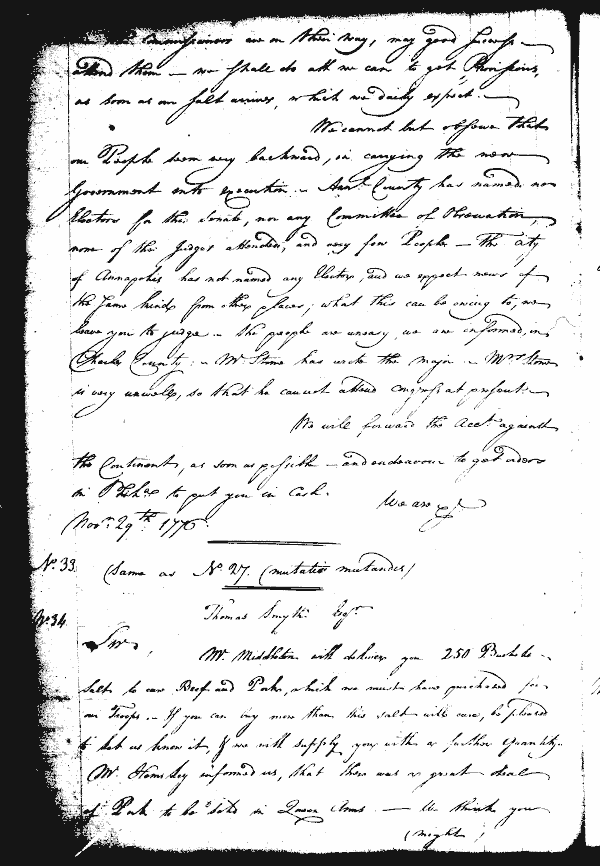 Commissioners are on their way, may good Success
attend them — we shall do all we can to get Provisions,
as soon as our salt arrives, which we daily expect. —
We cannot but observe that
our People seem very backward, in carrying the new
Government into execution. — Anl. County has named no
Electors for the Senate, nor any Committee of Observation,
none of the Judges attended, and very few People — The City
of Annapolis has not named any Elector, and we expect news of
the same kind from other places; what this can be owing to, we
leave you to judge. — the people are uneasy, we are informed, in
Charles County; — Mr. Stone has wrote the major — Mrs. Stone
is very unwell, so that he cannot attend Congress at present. —
We will forward the Acct. against
the Continent, as soon as possible — and endeavour to get orders
on Phila. to put you in Cash.
We are &c.
Novr. 29th 1776.
No. 33 (Same as No. 27. (mutatis mutandis)
No. 34
Thomas Smyth Esqr.
Sir,
Mr. Middleton will deliver you 250 Bushels
salt to cure Beef and Pork, which we must have purchased for
our Troops. — If you can buy more than this salt will cure, be pleased
to let us know it, & we will supply you with a further quantity.
Mr. Hemsley informed us, that there was a great deal
of Pork to be sold in Queen Anns. — We think you
(might